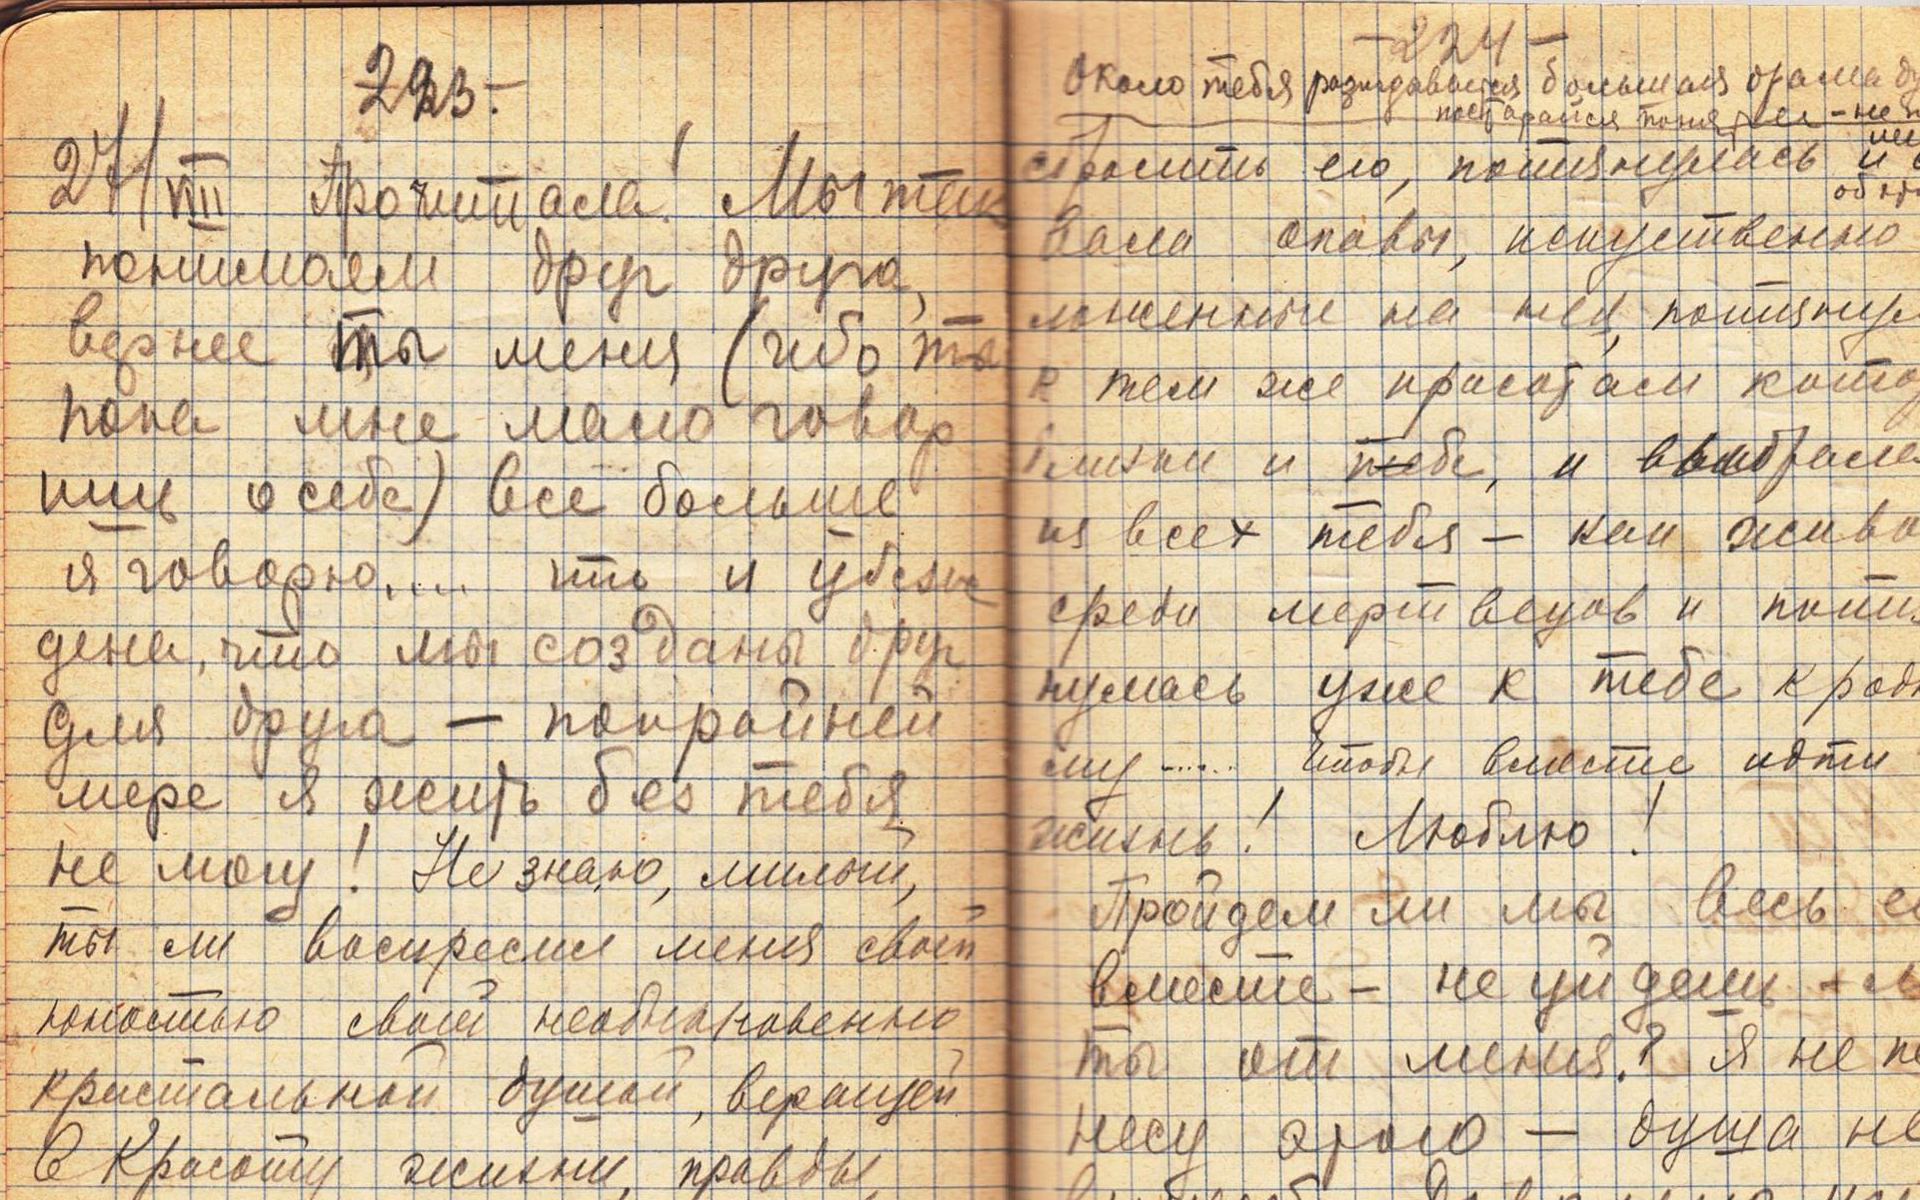 223.-
27/VIII Прочитала! Мы так
понимаем друг друга,
вернее ты меня (ибо ты
пока мне мало говор
ишь о себе) всё больше
я говорю.... что я убеж
дена, что мы созданы друг
для друга — покрайней
мере я жить без тебя
не могу! Не знаю, милый,
ты ли воскресил меня своей
юностью своей необыкновенно
кристальной душой, верящей
в Красоту жизни, правды,
-224-
Около тебя разыгрывается большая драма
постарайся понять ее - не
сбросить его, потянулась и
вала оковы, искуственно
ложенные на неё, потянул
к тем же красотам кото
близки и тебе, и выбрала
из всех тебя — как живо
среди мертвецов и потя
нулась уже к тебе к родн
му ...... чтобы вместе идти
жизнь! Люблю!
Пройдем ли мы весь
вместе — не уйдешь -
ты от меня? Я не пе
несу этого — душа не